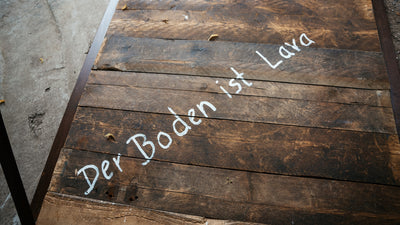 Der Boden ist Lara